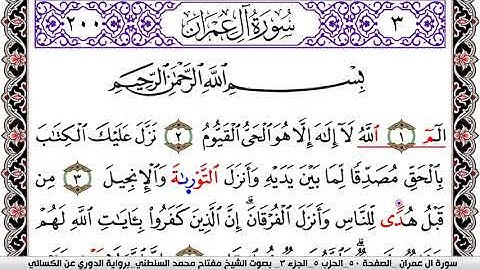 ٣ سُورَةُ آلِ عِمْرَانَ ٢٠٠
بِسْمِ اللَّهِ الرَّحْمَٰنِ الرَّحِيمِ
الٓمٓ ١ اللَّهُ لَآ إِلَٰهَ إِلَّا هُوَ الْحَيُّ الْقَيُّومُ ٢ نَزَّلَ عَلَيْكَ الْكِتَٰبَ
بِالْحَقِّ مُصَدِّقًا لِّمَا بَيْنَ يَدَيْهِ وَأَنزَلَ التَّوْرَىٰةَ وَالْإِنجِيلَ ٣ مِن
قَبْلُ هُدًى لِّلنَّاسِ وَأَنزَلَ الْفُرْقَانَ ۗ إِنَّ الَّذِينَ كَفَرُوا بِـَٔايَٰتِ اللَّهِ لَهُمْ
سورة ال عمران _الصفحة ٥٠_ الحزب ٥_الجزء ٣_ بصوت الشيخ مفتاح محمد السلطني_برواية الدوري عن الكسائي